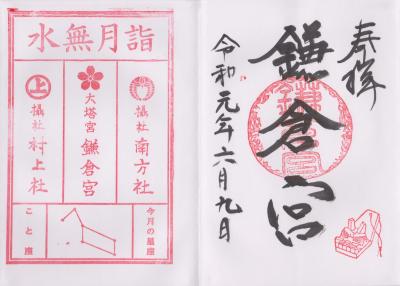 奉拝
鎌倉宮
令和元年六月九日
水無月詣
摂社 南方社
大塔宮 鎌倉宮
上
摂社 村上社
今月の星座
こと座